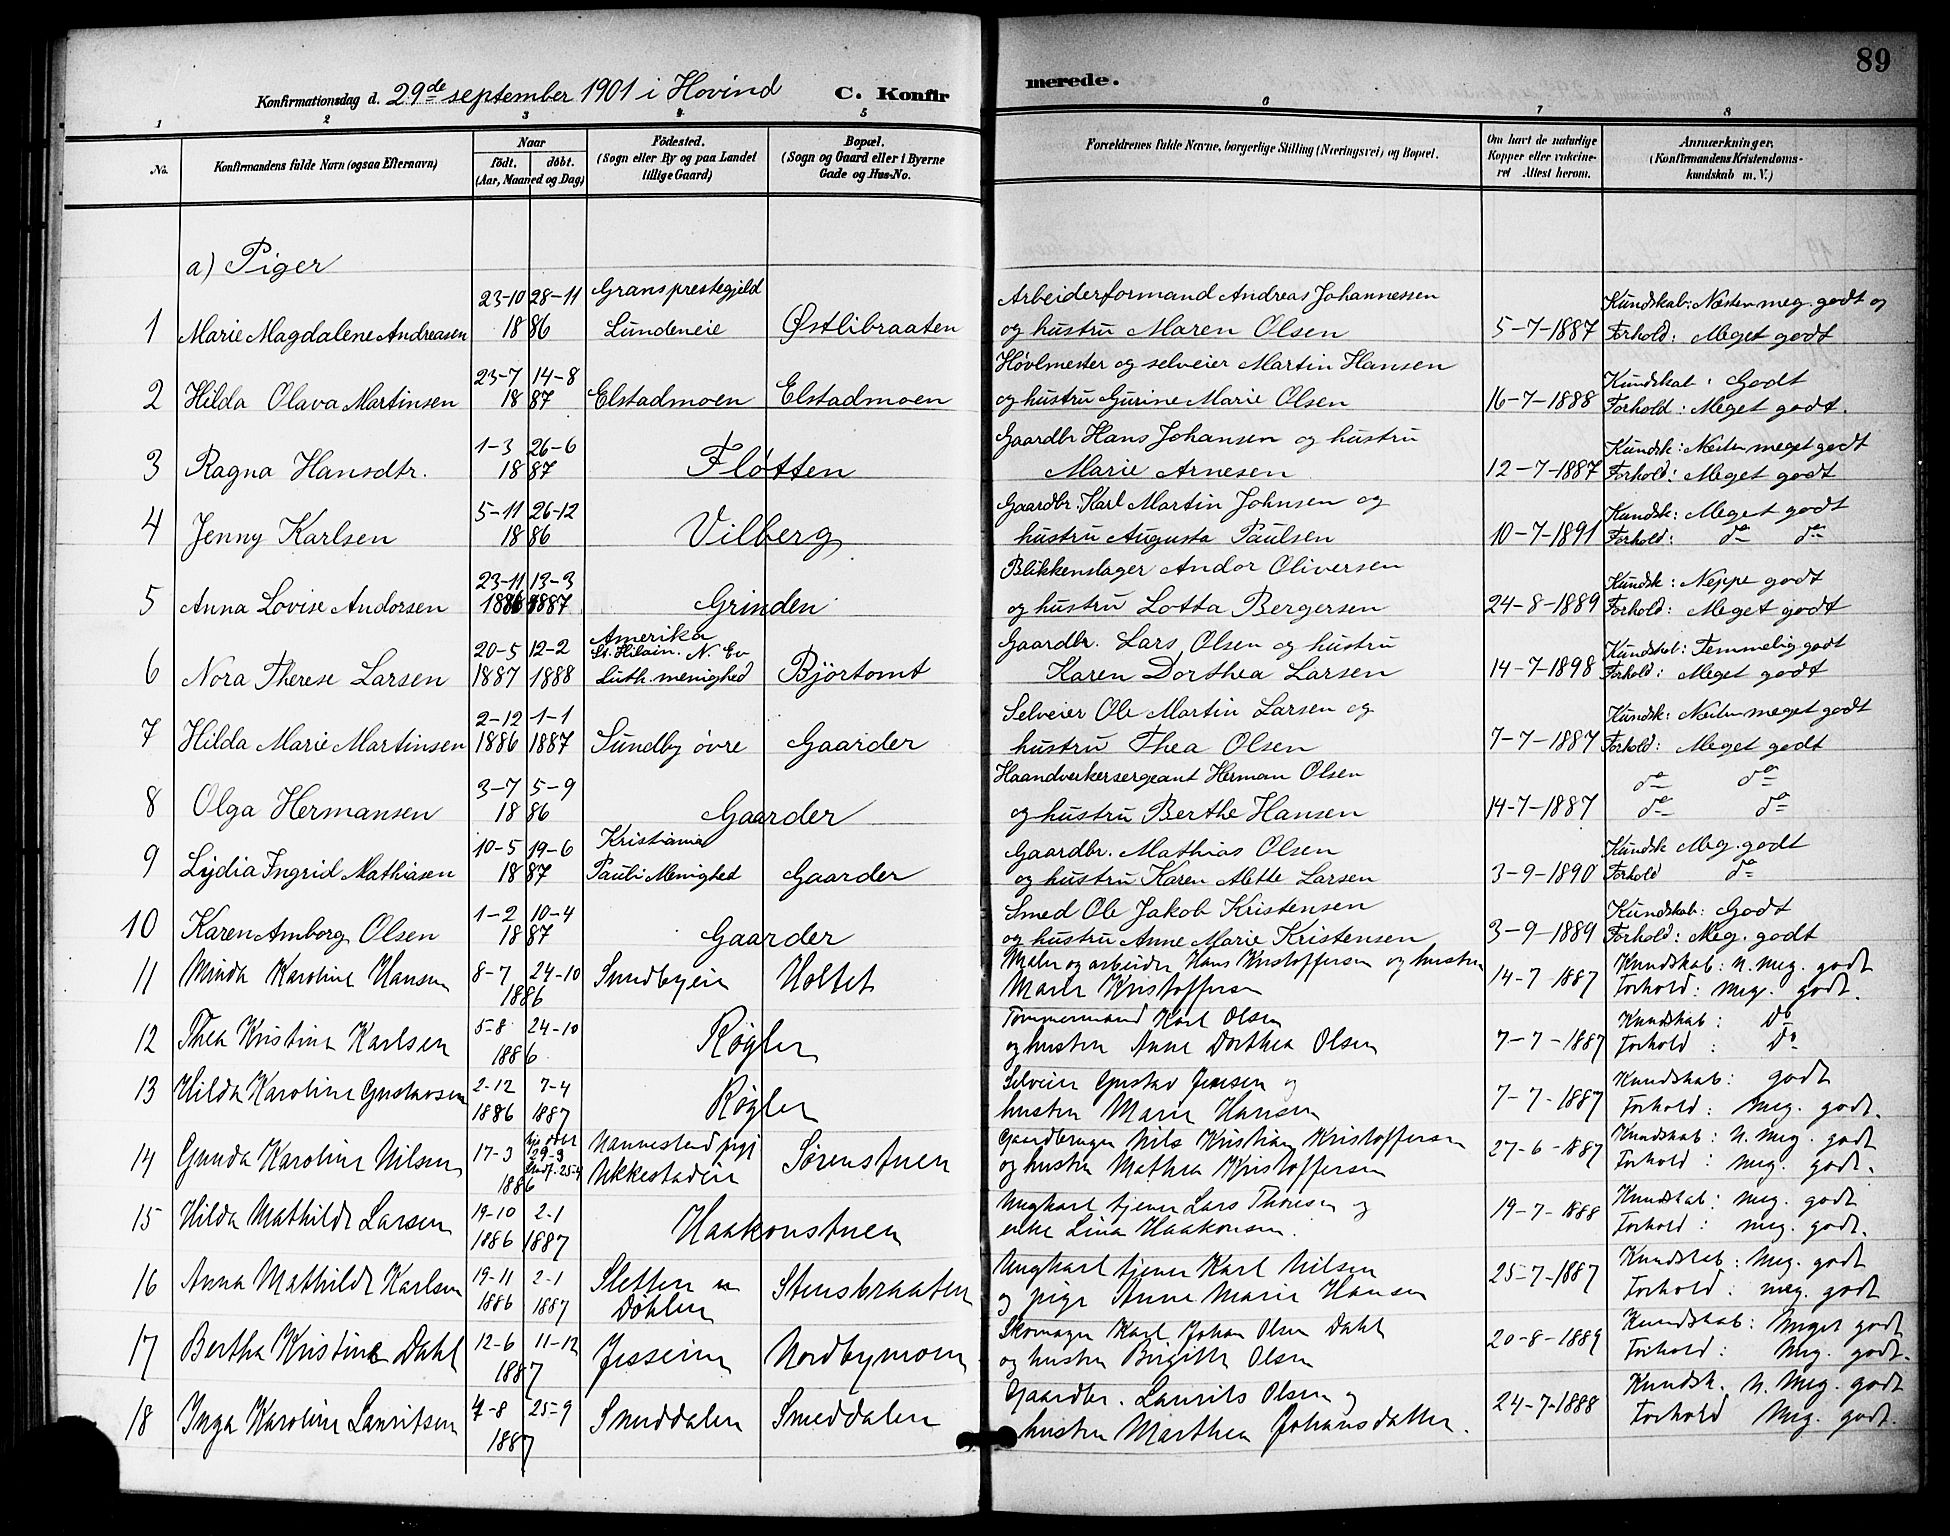 89
Konfirmationsdag d. 29de september 1901 i Hovind C. Konfirmerede.
1 2 3 4 5 6 7 8
No.
Konfirmandens fulde Navn (ogsaa Efternavn)
Naar
født. døbt.
(Aar, Maaned og Dag)
Fødested.
(Sogn eller By og paa Landet
tillige Gaard)
Bopæl.
(Sogn og Gaard eller i Byerne
Gade og Hus-No.
Forældrenes fulde Navne, borgerlige Stilling (Næringsvei) og Bopæl.
Om havt de naturlige
Kopper eller vakcine-
ret Attest herom.
Anmærkninger,
(Konfirmandens Kristendoms-
kundskab m. V.)
a) Piger
23-10 28-11 Grans prestegjeld Arbeiderformand Andreas Johannessen Kundskab: Næsten meg. godt og
1 Marie Magdalene Andreasen 1886 Lundeneie Østlibraaten og hustru Maren Olsen 5-7-1887 Forhold: Meget godt
23-7 14-8 Høvlmester og selveier Martin Hansen Kundskab: Godt
2 Hilda Olava Martinsen 1887 Elstadmoen Elstadmoen og hustru Gurine Marie Olsen 16-7-1888 Forhold: Meget godt.
1-3 26-6 Gaardbr Hans Johansen og hustru Kundsk: Næsten meget godt
3 Ragna Hansdtr. 1887 Fløtten Marie Arnesen 12-7-1887 Forhold: Meget godt
5-11 26-12 Gaardbr. Karl Martin Johnsen og Kundsk: Meget godt
4 Jenny Karlsen 1886 Vilberg hustru Augusta Paulsen 10-7-1891 Forhold: do do
23-11 13-3 Blikkenslager Andor Oliversen Kundsk: Neppe godt
5 Anna Lovise Andorsen 1886 1887 Grinden og hustru Lotta Bergersen 24-8-1889 Forhold: Meget godt
20-5 12-2 Amerika Gaardbr. Lars Olsen og hustru Kundskab: Temmelig godt
St. Hilain. N. Ev
6 Nora Therese Larsen 1887 1888 Luth. menighed Bjørtomt Karen Dorthea Larsen 14-7-1898 Forhold: Meget godt
2-12 1-1 Selveier Ole Martin Larsen og Kundsk: Næsten meget godt
7 Hilda Marie Martinsen 1886 1887 Sundby øvre Gaarder hustru Thea Olsen 7-7-1887 Forhold: Meget godt
3-7 5-9 Haandverkersergeant Herman Olsen do do
8 Olga Hermansen 1886 Gaarder og hustru Berthe Hansen 14-7-1887 do do
10-5 19-6 Kristiania Gaardbr. Mathias Olsen Kundsk Meg. godt
9 Lydia Ingrid Mathiasen 1887 Pauli Menighed Gaarder og hustru Karen Alette Larsen 3-9-1890 Forhold do
1-2 10-4 Smed Ole Jakob Kristensen Kundskab: Godt
10 Karen Amborg Olsen 1887 Gaarder og hustru Anne Marie Kristensen 3-9-1889 Forhold: Meg. godt
8-7 24-10 Maler og arbeider Hans Kristoffersen og hustru Kundskab: N. meg. godt
11 Minda Karoline Hansen 1886 Sundbyeie Holtet Marie Kristoffersen 14-7-1887 Forhold: Meg. godt.
5-8 24-10 Tømmermand Karl Olsen Kundskab: Do
12 Thea Kristine Karlsen 1886 Røgler og hustru Anne Dorthea Olsen 7-7-1887 Forhold: Do
2-12 7-4 Selveier Gustav Jensen og Kundskab: godt
13 Hilda Karoline Gustavsen 1886 1887 Røgler hustru Marie Hansen 7-7-1887 Forhold: Meg. godt.
17-3 29-3 Nannestad pgj Gaardbruger Nils Kristian Kristoffersen Kundskab: N. meg. godt
14 Gunda Karoline Nilsen 1886 25-4 Ukkestadeie Sørenstuen og hustru Mathea Kristoffersen 27-6-1887 Forhold: Meg. godt.
19-10 2-1 Ungkarl tjener Lars Thoresen og Kundskab: Meg. godt
15 Hilda Mathilde Larsen 1886 1887 Haakonstuen enke Lina Haakonsen. 19-7-1888 Forhold: Meg. godt.
19-11 2-1 Sletten u Ungkarl tjener Karl Nilsen Kundskab: Meg. godt
16 Anna Mathilde Karlsen 1886 1887 Døhlen Stensbraaten og pige Anne Marie Hansen 25-7-1887 Forhold: meg. godt
12-6 11-12 Skomager Karl Johan Olsen Dahl Kundskab: Meget godt
17 Bertha Kristine Dahl 1887 Jesseim Nordbymoen og hustru Birgitte Olsen 20-8-1889 Forhold: Meg. godt.
4-8 25-9 Gaardbr. Laurits Olsen og Kundsk. N. Meg. godt
18 Inga Karoline Lauritsen 1887 Smeddalen Smeddalen hustru Marthea Johansdatter. 24-7-1888 Forhold Meg. godt.